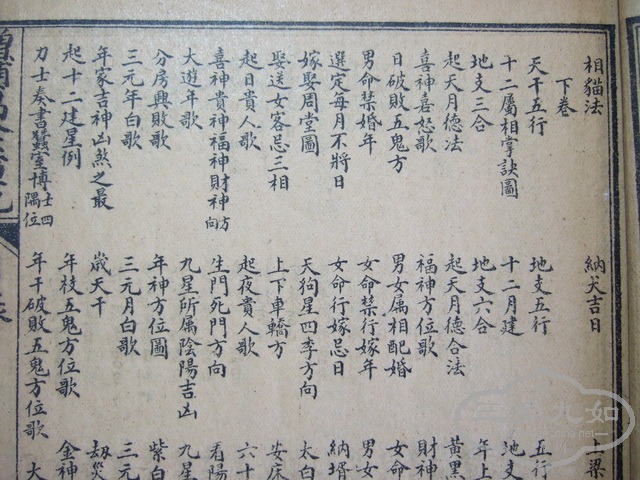 相貓法 納犬吉日 上梁
下卷
天干五行 地支五行 五行
十二屬相掌訣圖 十二月建 地支
地支三合 地支六合 年上
起天月德法 起天月德合法 黃黑
喜神喜怒歌 福神方位歌 財神
日破敗五鬼方 男女属相配婚 女命
男命禁婚年 女命禁行嫁年 男女
選定每月不將日 女命行嫁忌日 納壻
嫁娶周堂圖 天狗星四季方向 太白
娶送女客忌三相 上下車轎方 安床
起日貴人歌 起夜貴人歌 六十
喜神貴神福神財神方向 生門死門方向 看陽
大遊年歌 九星所属陰陽吉凶 九星
分房興敗歌 年神方位圖 紫白
三元年白歌 三元月白歌 三元
年家吉神凶煞之最 歲天干 劫災
起十二建星例 年枝五鬼方位歌 金神
力士奏書蠶室博士四隅位 年干破敗五鬼方位歌 大